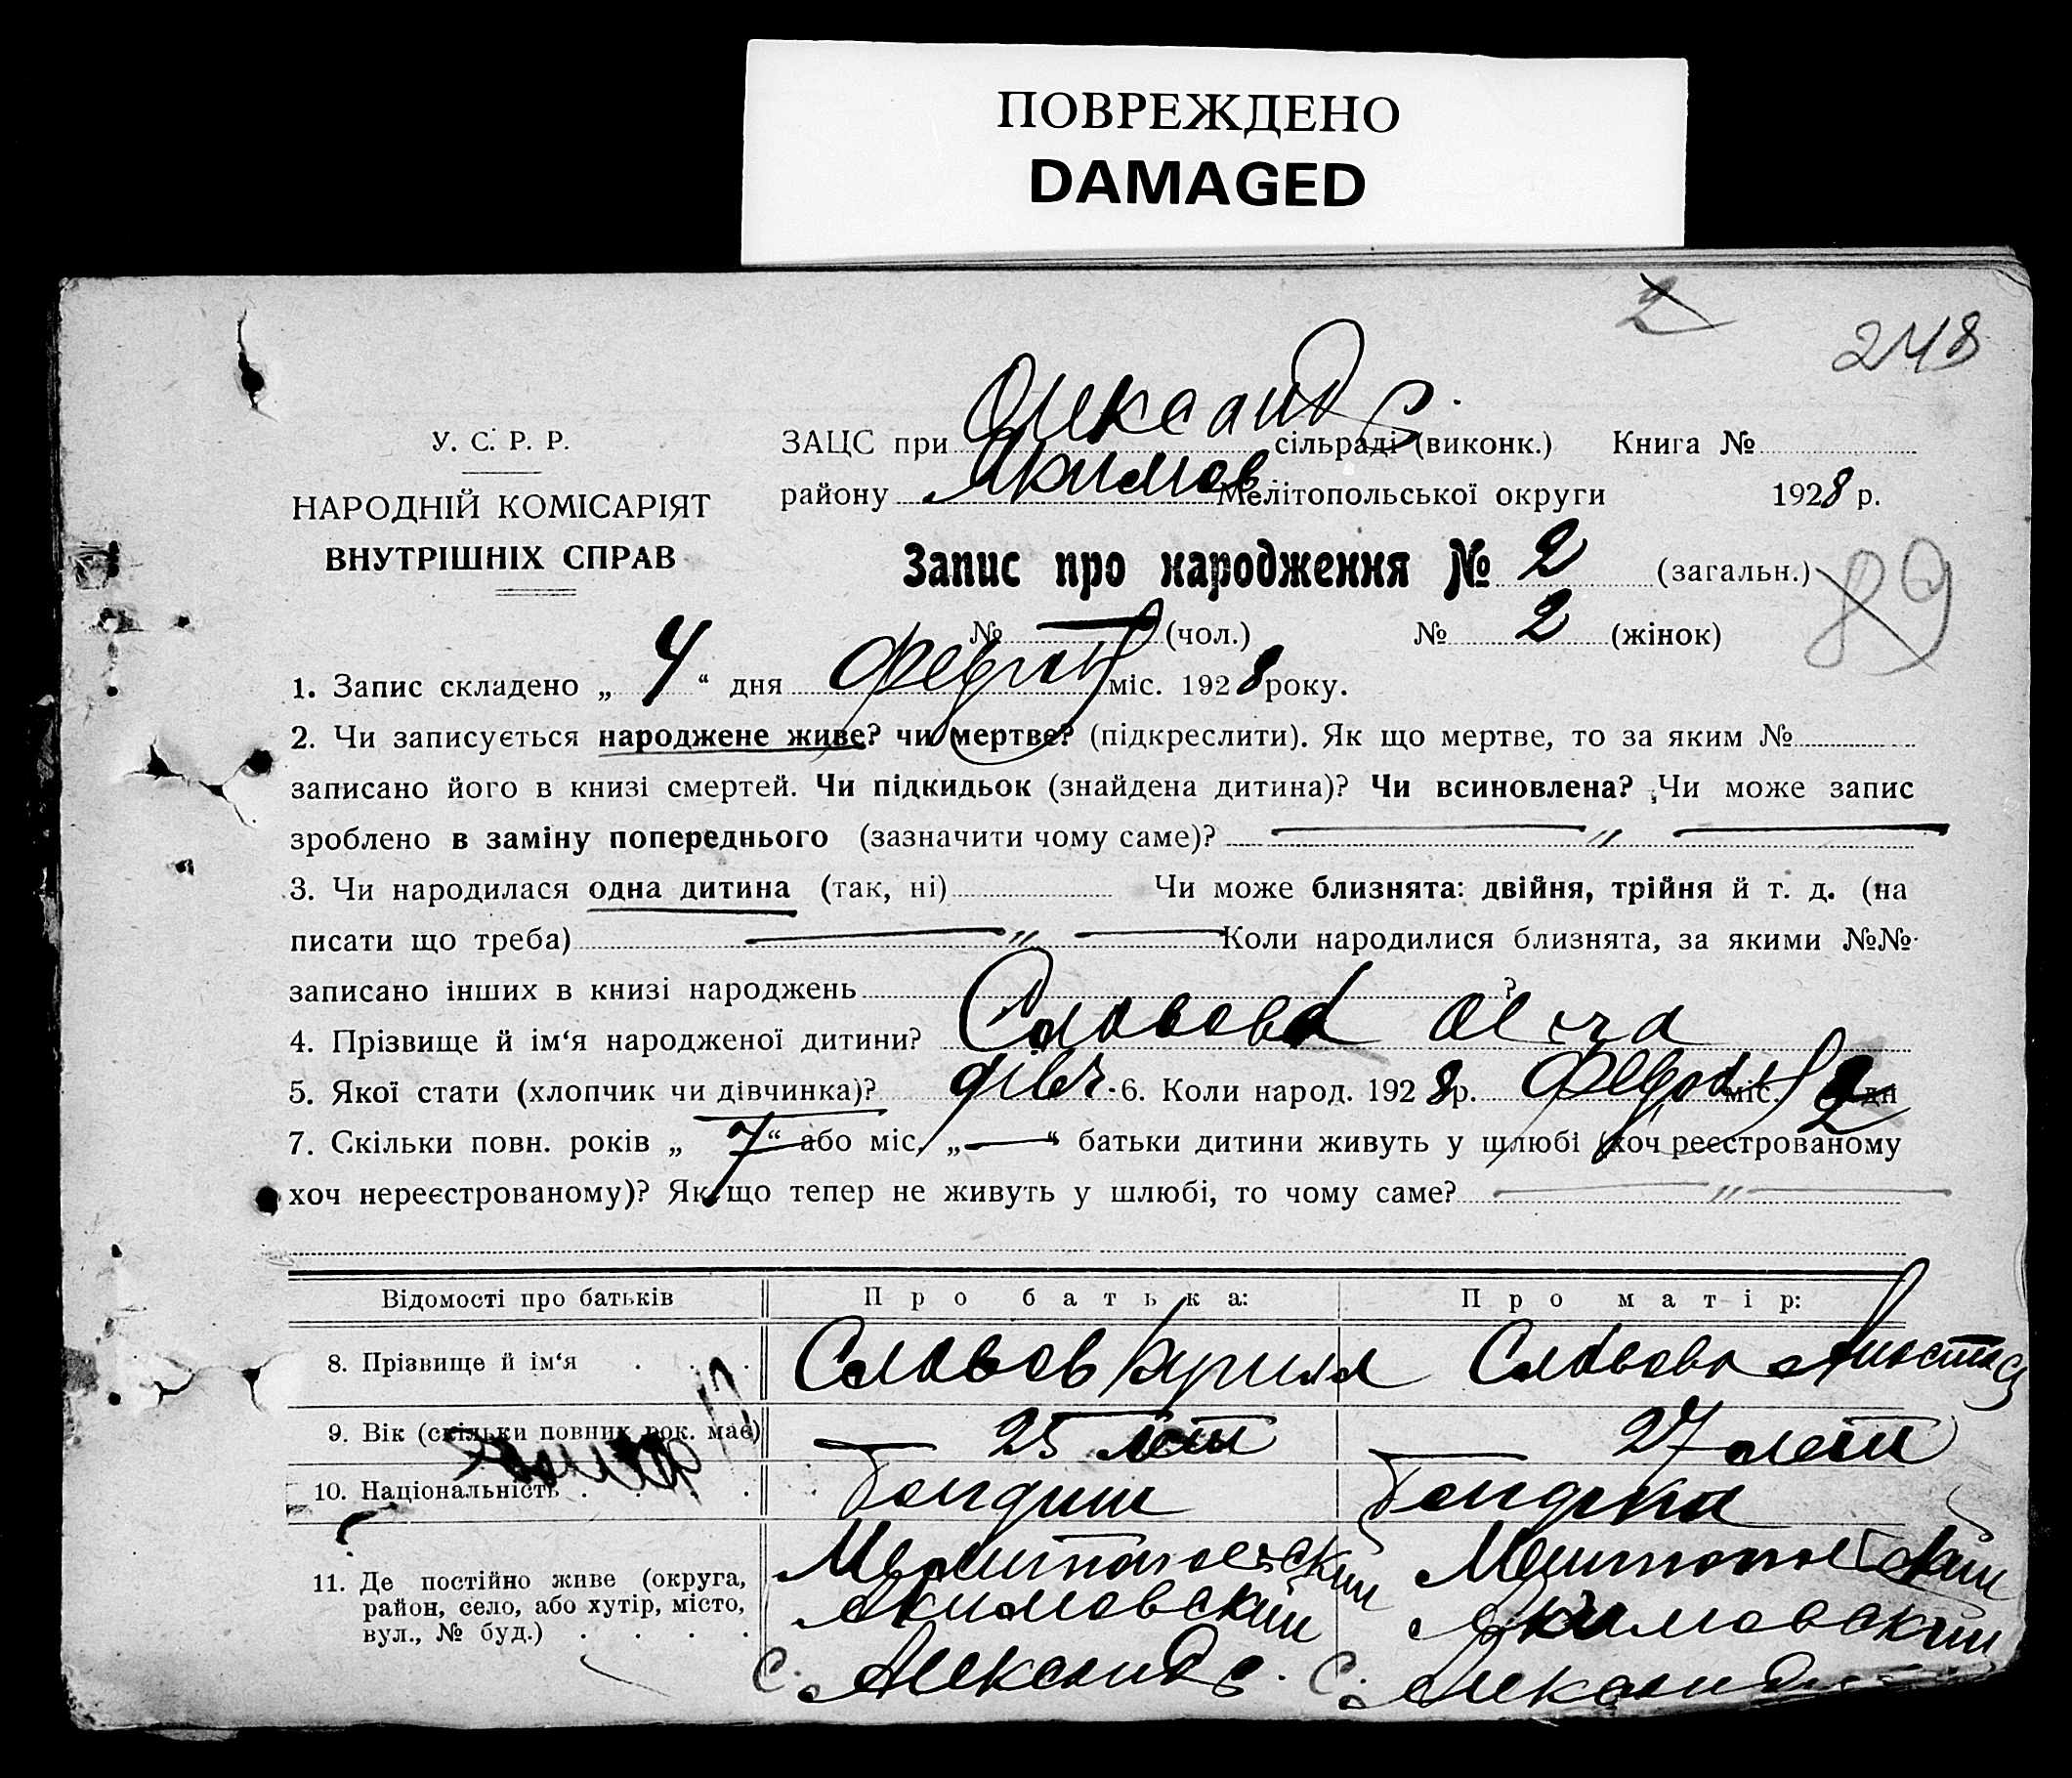 ПОВРЕЖДЕНО
DAMAGED
2
248
У. С. Р. Р.
НАРОДНІЙ КОМІСАРІЯТ
ВНУТРІШНІХ СПРАВ
ЗАЦС при Олександр. сільраді (виконк.) Книга №
району Якимов Мелітопольської округи 1928 р.
Запис про народження № 2 (загальн.)
89
№ — (чол.) № 2 (жінок)
1. Запис складено „ 4 “ дня міс. 1928 року.
2. Чи записується народжене живе? чи мертве? (підкреслити). Як що мертве, то за яким №
записано його в книзі смертей. Чи підкидьок (знайдена дитина)? Чи всиновлена? Чи може запис
зроблено в заміну попереднього (зазначити чому саме)? — „ —
3. Чи народилася одна дитина (так, ні) Чи може близнята: двійня, трійня й т. д. (на
писати що треба) — „ — Коли народилися близнята, за якими №№
записано інших в книзі народжень ?
4. Прізвище й ім‘я народженої дитини? Славова
5. Якої стати (хлопчик чи дівчинка)? дівч. 6. Коли народ. 1928 р. міс. 2 дн
7. Скільки повн. років „ 7 “ або міс. „ — “ батьки дитини живуть у шлюбі (хоч реєстрованому
хоч нереєстрованому)? Як що тепер не живуть у шлюбі, то чому саме? — „ —
Відомості про батьків Про батька: Про матір:
8. Прізвище й ім‘я . . . Славов Кирилл Славова Анастас
9. Вік (скільки повних рок. має) 25 лет 27 лет
10. Національність . . . .
11. Де постійно живе (округа, Мелитопольский Мелитопольский
район, село, або хутір, місто, Акимовский Акимовский
вул., № буд.) . . . . с. Александр. с. Александр